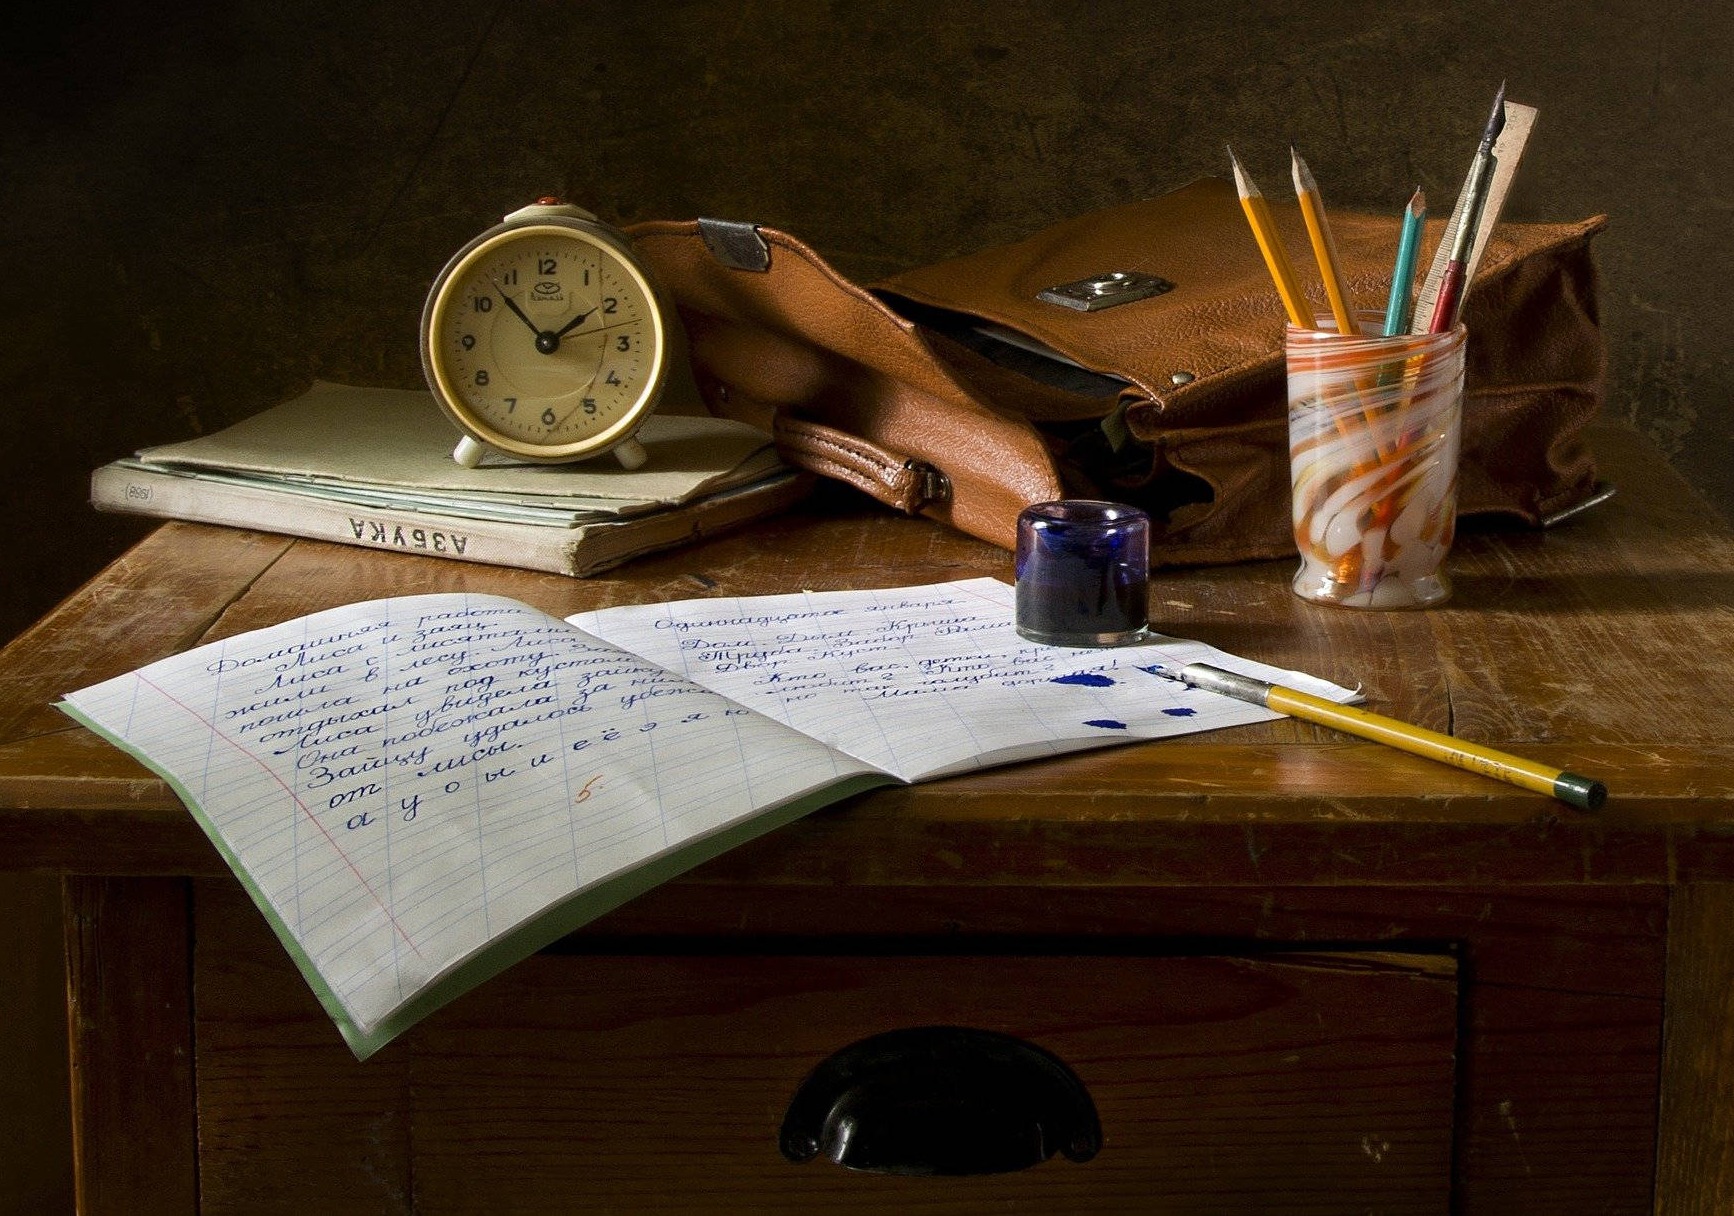 12
1
2
3
4
5
6
7
8
9
10
11
АЗБУКА
(1968)
Домашняя работа
Лиса и заяц.
Лиса с лисятами
жили в лесу. Лиса
пошла на охоту. За
отдыхал под кустом
Лиса увидела зайку
Она побежала за ни
Зайцу удалось убежа
от лисы.
а у о ы и е ё э я ю
5.
Одиннадцатое января
Дом Дым Крыша
Труба Забор
Двор Куст
Кто вас, детки, кр
любит? Кто вас не
но так голубит?
Мама дорогая!